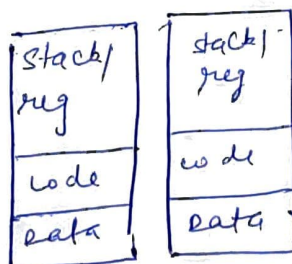 stack/
reg
code
Data
stack/
reg
code
Data